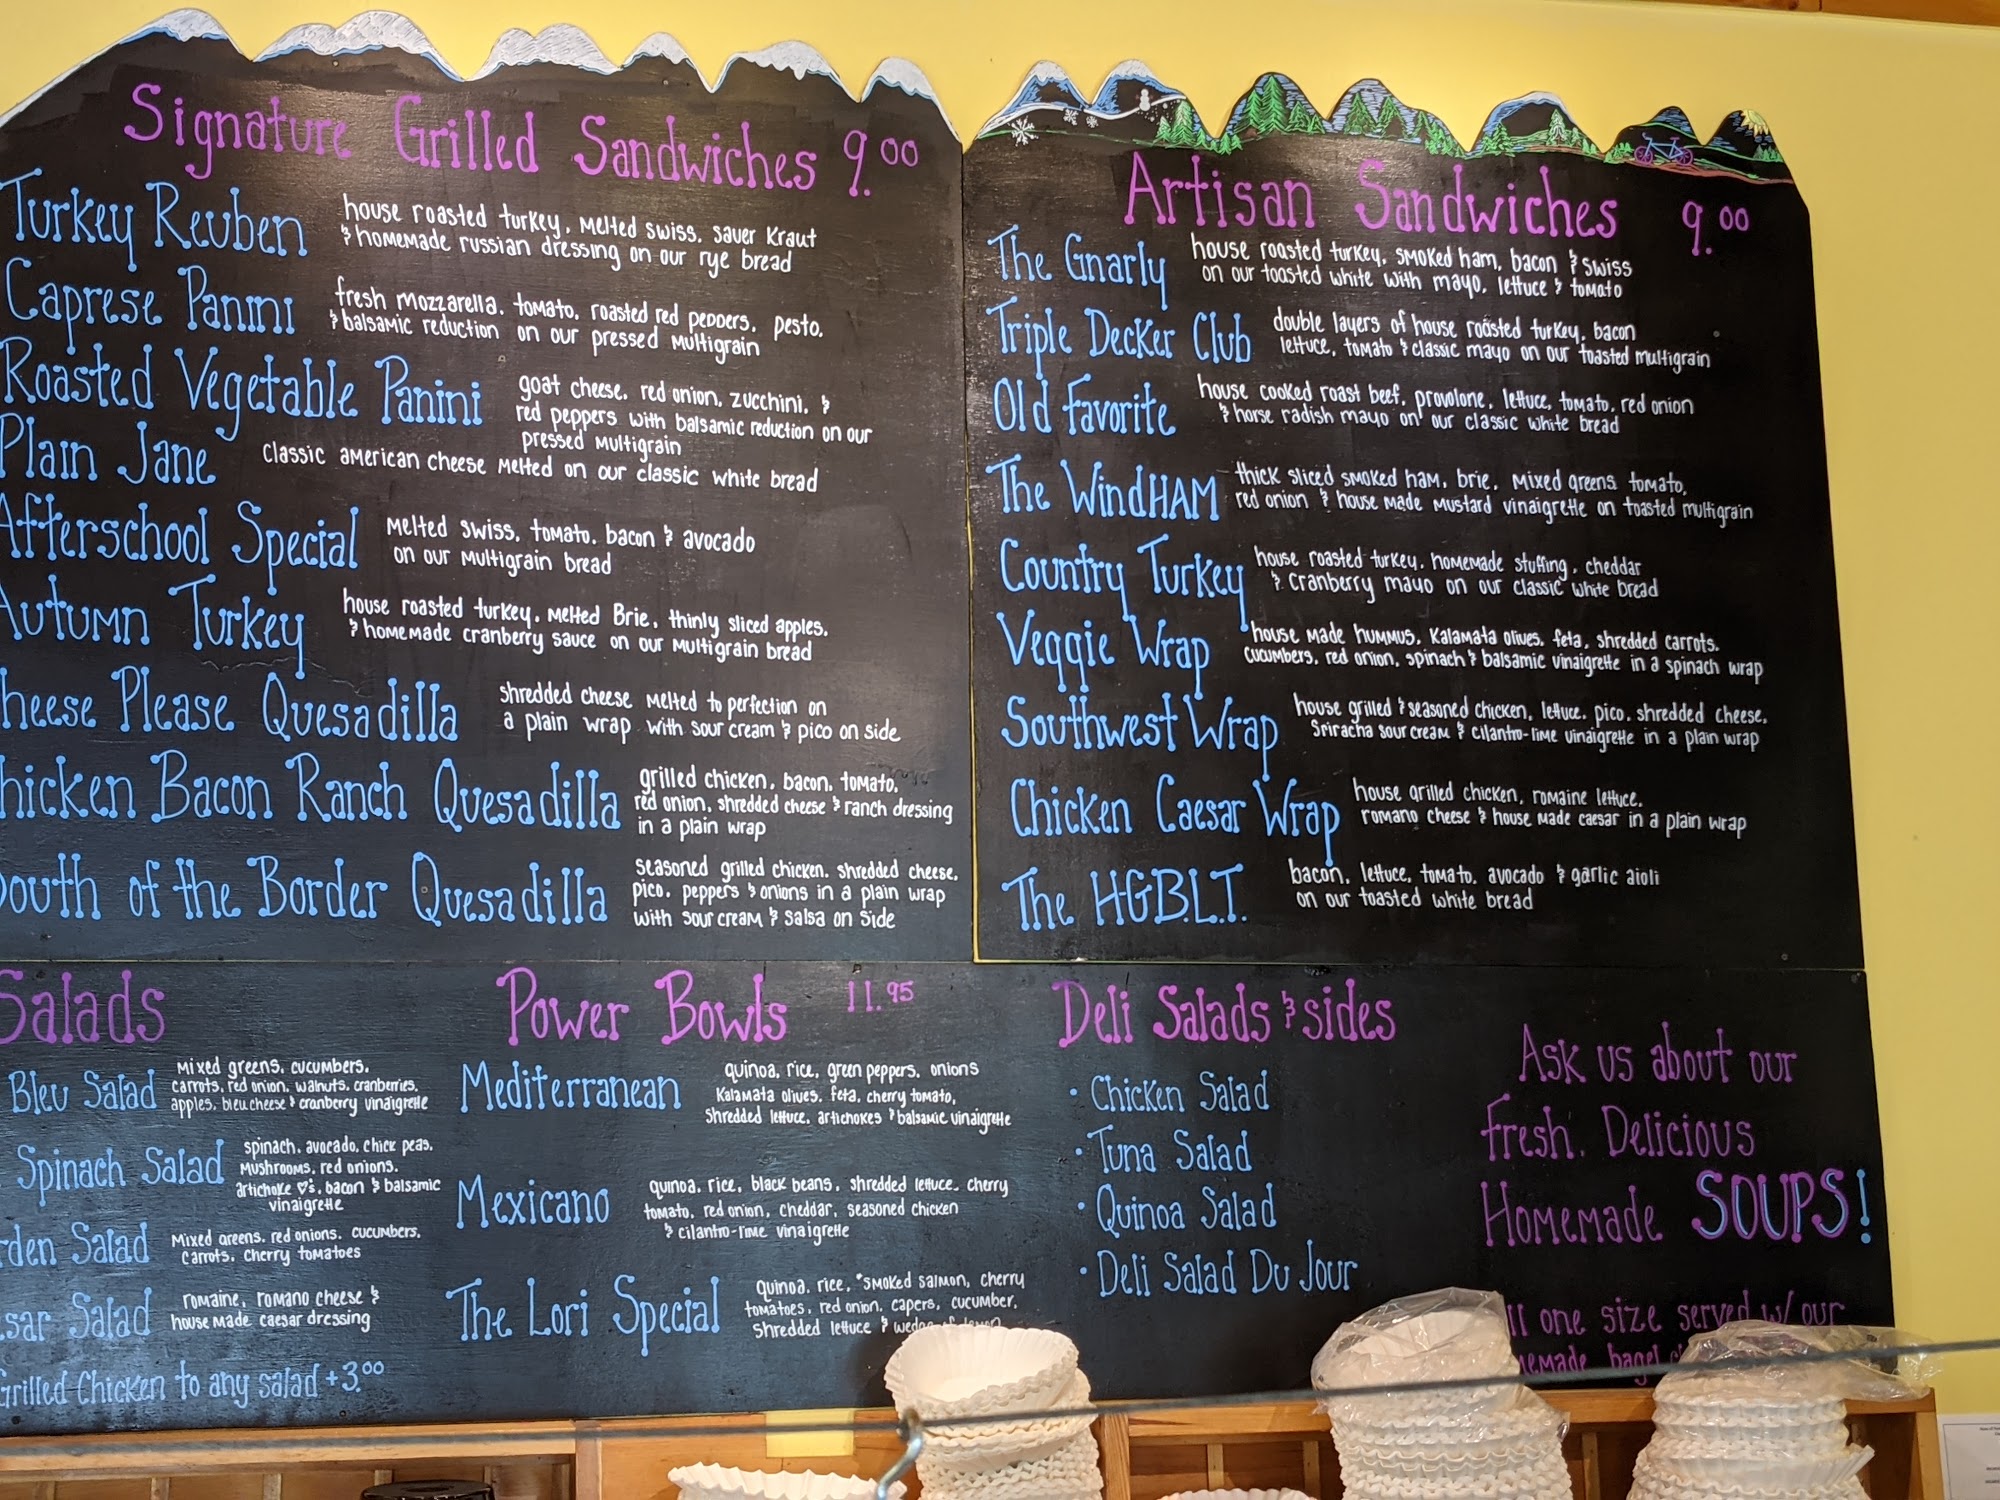 Signature Grilled Sandwiches 9.00
Turkey Reuben
house roasted turkey, melted swiss, sauer kraut
& homemade russian dressing on our rye bread
Caprese Panini
fresh mozzarella, tomato, roasted red peppers, pesto,
& balsamic reduction on our pressed multigrain
Roasted Vegetable Panini
goat cheese, red onion, zucchini, &
red peppers with balsamic reduction on our
pressed multigrain
Plain Jane
classic american cheese melted on our classic white bread
Afterschool Special
melted swiss, tomato, bacon & avocado
on our multigrain bread
Autumn Turkey
house roasted turkey, melted Brie, thinly sliced apples,
& homemade cranberry sauce on our multigrain bread
heese Please Quesadilla
shredded cheese melted to perfection on
a plain wrap with sour cream & pico on side
hicken Bacon Ranch Quesadilla
grilled chicken, bacon, tomato,
red onion, shredded cheese & ranch dressing
in a plain wrap
South of the Border Quesadilla
seasoned grilled chicken, shredded cheese,
pico, peppers & onions in a plain wrap
with sour cream & salsa on side
Artisan Sandwiches 9.00
The Gnarly
house roasted turkey, smoked ham, bacon & swiss
on our toasted white with mayo, lettuce & tomato
Triple Decker Club
double layers of house roasted turkey, bacon
lettuce, tomato & classic mayo on our toasted multigrain
Old Favorite
house cooked roast beef, provolone, lettuce, tomato, red onion
& horse radish mayo on our classic white bread
The WindHAM
thick sliced smoked ham, brie, mixed greens tomato,
red onion & house made mustard vinaigrette on toasted multigrain
Country Turkey
house roasted turkey, homemade stuffing, cheddar
& cranberry mayo on our classic white bread
Veggie Wrap
house made hummus, Kalamata olives, feta, shredded carrots,
cucumbers, red onion, spinach & balsamic vinaigrette in a spinach wrap
Southwest Wrap
house grilled & seasoned chicken, lettuce, pico, shredded cheese,
Sriracha sour cream & cilantro-lime vinaigrette in a plain wrap
Chicken Caesar Wrap
house grilled chicken, romaine lettuce,
romano cheese & house made caesar in a plain wrap
The H.G.B.L.T.
bacon, lettuce, tomato, avocado & garlic aioli
on our toasted white bread
Salads
Bleu Salad
mixed greens, cucumbers,
carrots, red onion, walnuts, cranberries,
apples, bleu cheese & cranberry vinaigrette
Spinach Salad
spinach, avocado, chick peas,
mushrooms, red onions,
artichoke ♡'s, bacon & balsamic
vinaigrette
rden Salad
mixed greens, red onions, cucumbers,
carrots, cherry tomatoes
sar Salad
romaine, romano cheese &
house made caesar dressing
Grilled Chicken to any salad +3.00
Power Bowls 11.95
Mediterranean
quinoa, rice, green peppers, onions
Kalamata olives, feta, cherry tomato,
shredded lettuce, artichokes & balsamic vinaigrette
Mexicano
quinoa, rice, black beans, shredded lettuce, cherry
tomato, red onion, cheddar, seasoned chicken
& cilantro-lime vinaigrette
The Lori Special
quinoa, rice, *smoked salmon, cherry
tomatoes, red onion, capers, cucumber,
shredded lettuce & wedge of lemon
Deli Salads & sides
• Chicken Salad
• Tuna Salad
• Quinoa Salad
• Deli Salad Du Jour
Ask us about our
fresh, Delicious
Homemade SOUPS!
ll one size served w/ our
memade bagel